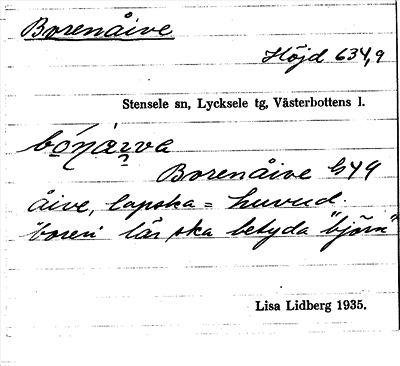 Borenåive
Höjd 634,9
Stensele sn, Lycksele tg, Västerbottens l.
Borenåive G49
åive, lapska = huvud.
"boren" lär ska betyda "björn"
Lisa Lidberg 1935.